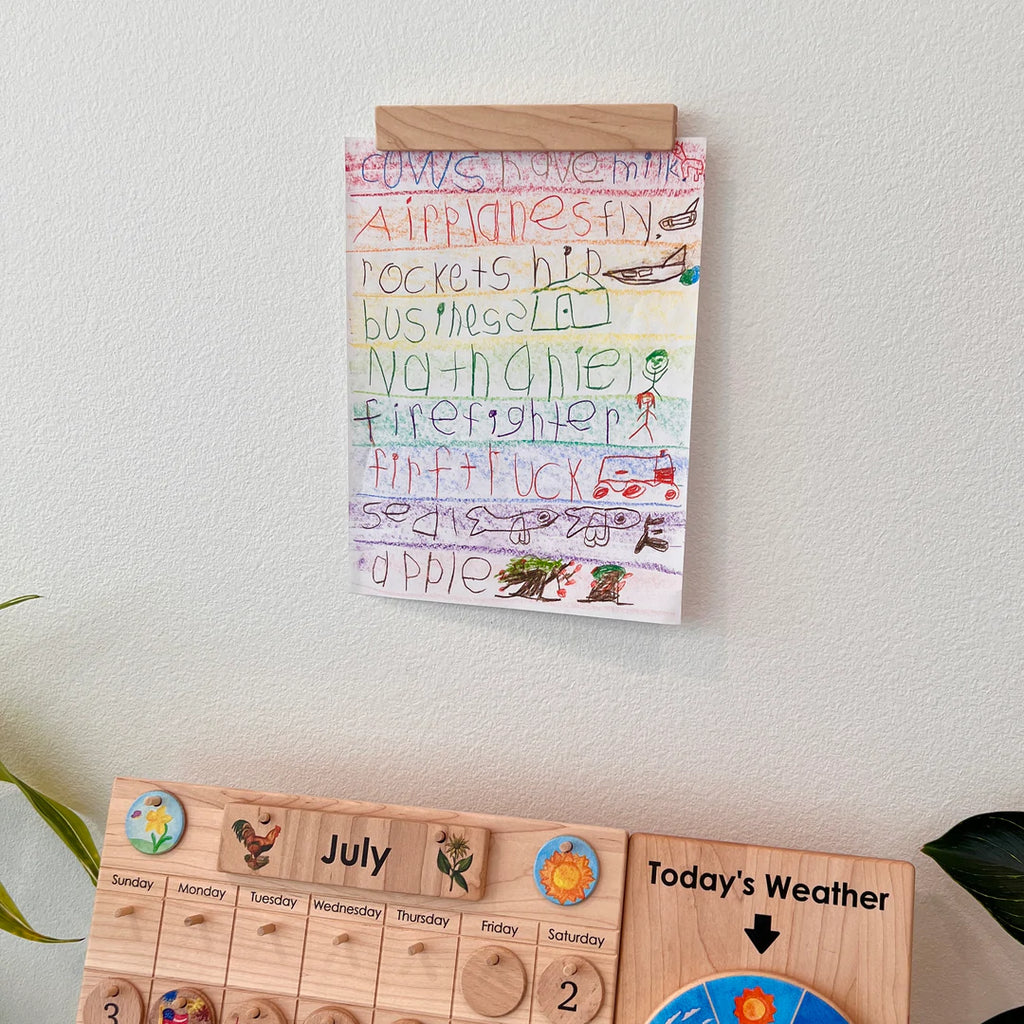 cows have milk.
Airplanes fly.
rockets hip
business
Nathaniel
firefighter
firftruck
seal
apple
July
Today's Weather
Sunday Monday Tuesday Wednesday Thursday Friday Saturday
2
3